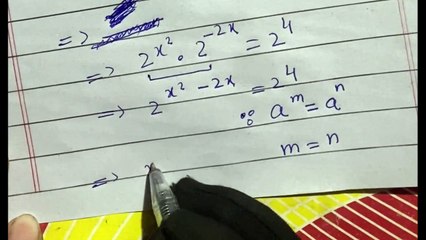 =>
=> 2^{x^2} · 2^{-2x} = 2^4
=> 2^{x^2 - 2x} = 2^4
∵ a^m = a^n
m = n
=> x